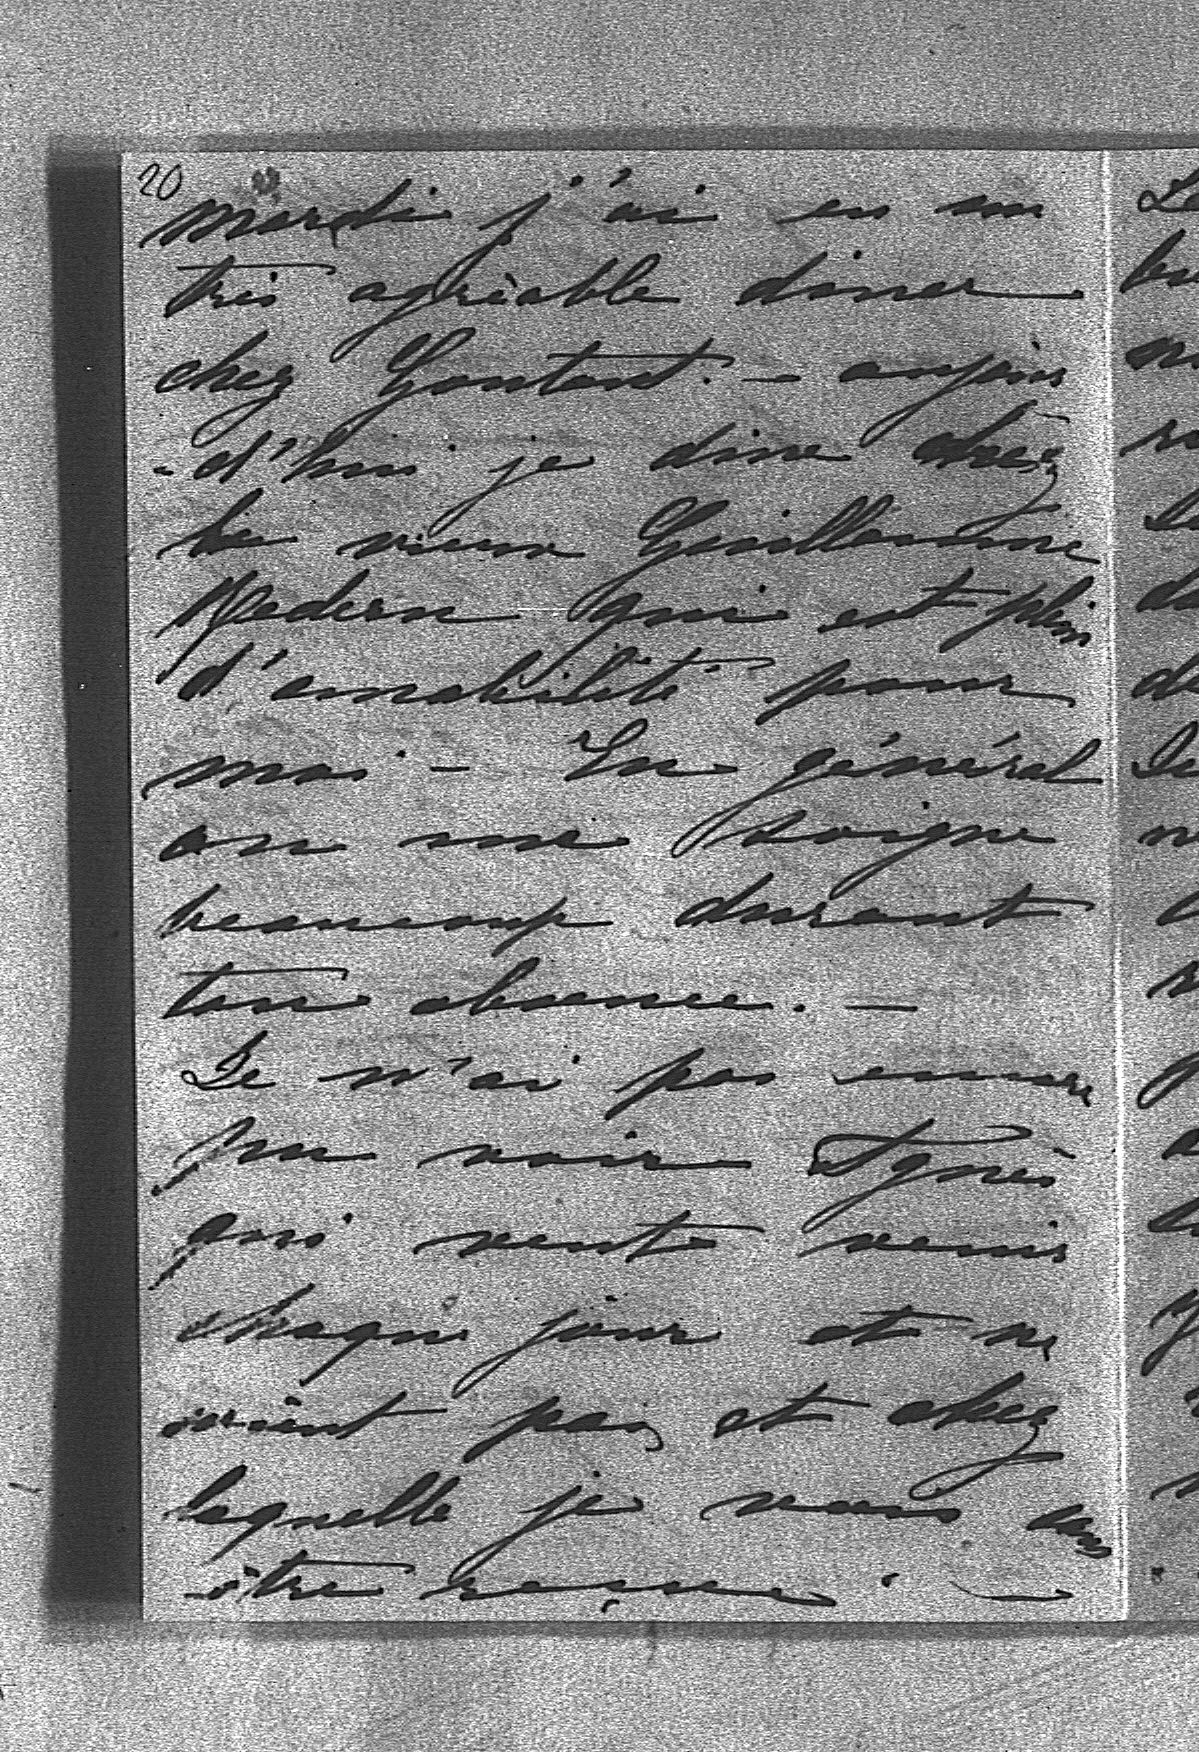 20
mardi j'ai eu un
très agréable diner
chez Gontant. — aujour
-d'hui je dine chez
le vieux Guillaume
Redern qui est plein
d'amabilité pour
moi — En général
on me soigne
beaucoup durant
ton absence. —
Je n'ai pas encore
pu voir Agnès
qui veut venir
chaque jour et ne
vient pas et chez
laquelle je vais sans
être reçue. —